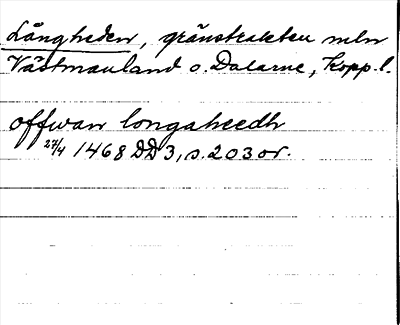 Långheden, gränstrakten mln
Västmanland o. Dalarne, Kopp. l.
offwan longaheedh
27/4 1468 DD3, s. 203 or.